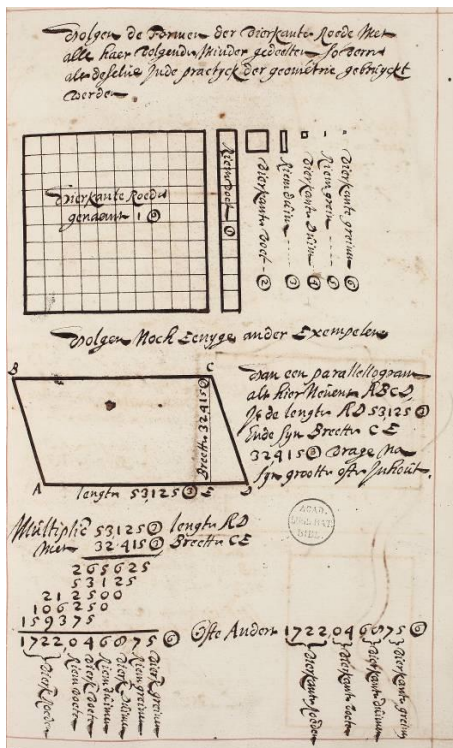 Volgen de Formen der Vierkante Roede Met
alle haer Volgende Minder gedeelten
als deselve Inde practyck der geometrie gebruyckt
werden
Vierkante Roede
genaemt 1 ⓪
Riemvoet ①
Vierkante Voet ②
Riemduim ③
Vierkante Duim ④
Riemgrein ⑤
Vierkante greinen ⑥
Volgen Noch Eenyge ander Exempelen
B
C
Van een parallellogram
als hier Nevens ABCD
Is de lengte AD 53125 ③
Ende syn Breette CE
32415 ③ Vrage Na
syn grootte ofte Inhout.
Breette 32415 ③
A
lengte 53125 ③
E
D
Multiplic 53125 ③ lengte AD
Met 32415 ③ Breette CE
265625
53125
212500
106250
159375
1722046875 ⑥
Vierk Roeden
Riem Voeten
Vierk Voeten
Riemduimen
Vierk Duimen
Riemgreinen
Vierk greinen
Ofte Anders 1722046875 ⑥
Vierkante Roeden
Vierkante Voeten
Vierkante Duimen
Vierkante greinen
ACAD.
LUGD. BAT.
BIBL.